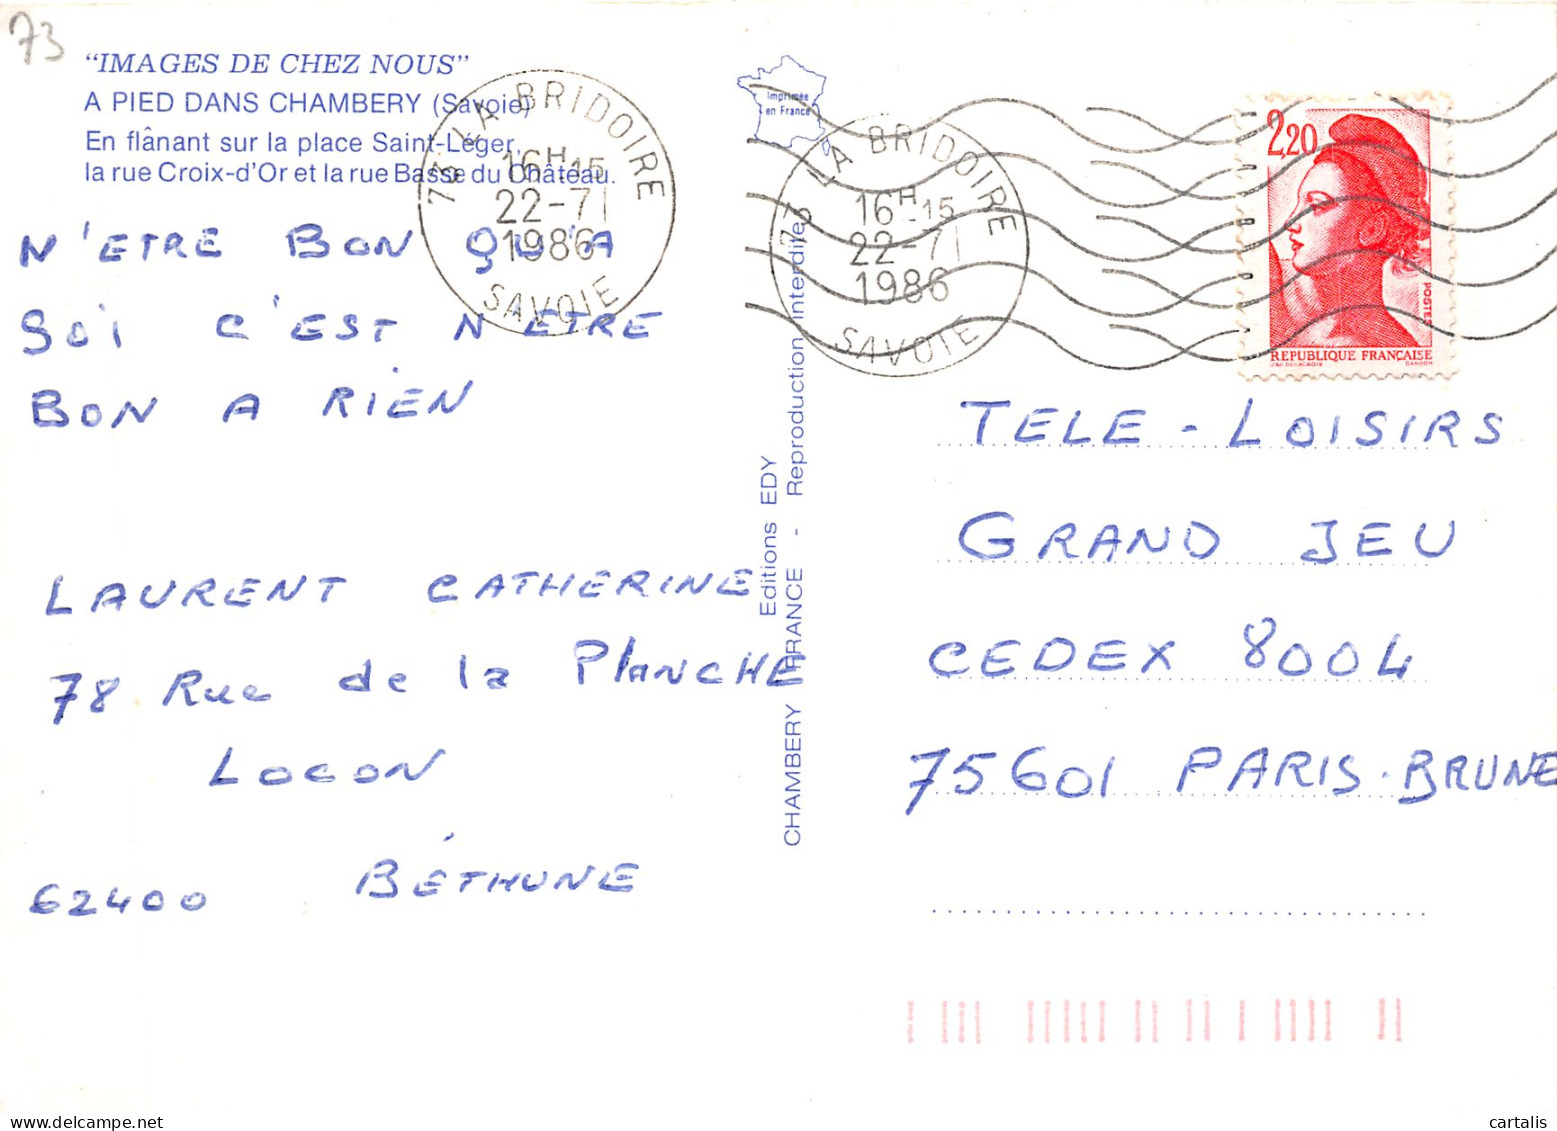 73
"IMAGES DE CHEZ NOUS"
A PIED DANS CHAMBERY (Savoie)
En flânant sur la place Saint-Léger,
la rue Croix-d'Or et la rue Basse du Château.
73 LA BRIDOIRE
16H-15
22-7
1986
SAVOIE
N'ETRE BON QU'A
SOI C'EST N'ETRE
BON A RIEN
LAURENT CATHERINE
78 Rue de la PlANCHE
LOCON
62400 BÉTHUNE
Editions EDY
CHAMBERY FRANCE - Reproduction interdite
Imprimée
en France
73 LA BRIDOIRE
16H-15
22-7
1986
SAVOIE
2,20
POSTES
REPUBLIQUE FRANÇAISE
GANDON
TELE-LOISIRS
GRAND JEU
CEDEX 8004
75601 PARIS-BRUNE
cartalis